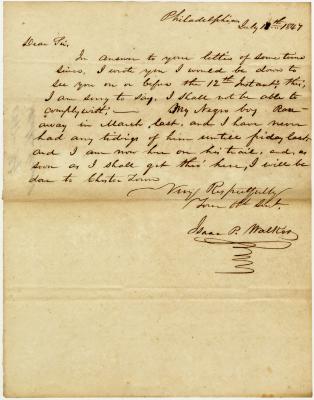 Philadelphia
July 10th 1847
Dear Sir,
In answer to your letter of some time
since, I wrote you I would be down to
see you on or before the 12th Instant, this,
I am sorry to say, I shall not be able to
comply with. My Negro boy Ran
away in March last, and I have never
had any tidings of him untill friday last
and I am now here on his trail, and, as
soon as I shall get this here, I will be
down to Chester Town
Very Respectfully
Your Obt Svt.
Isaac P. Walker